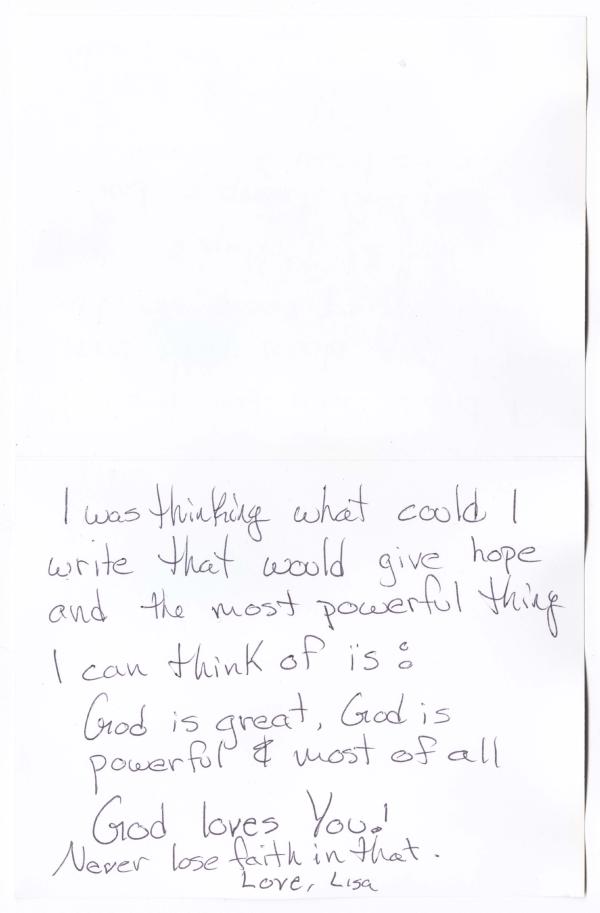 I was thinking what could I
write that would give hope
and the most powerful thing
I can think of is:
God is great, God is
powerful & most of all
God loves You!
Never lose faith in that.
Love, Lisa